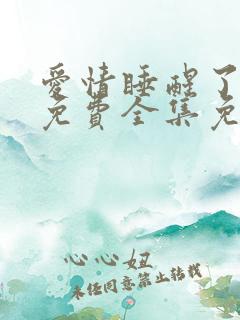 愛情睡醒了
免費全集免
心心妞
未经同意禁止转载